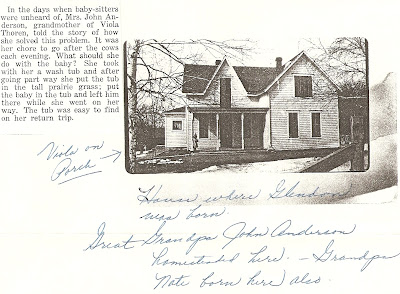 In the days when baby-sitters
were unheard of, Mrs. John An-
derson, grandmother of Viola
Thoren, told the story of how
she solved this problem. It was
her chore to go after the cows
each evening. What should she
do with the baby? She took
with her a wash tub and after
going part way she put the tub
in the tall prairie grass; put
the baby in the tub and left him
there while she went on her
way. The tub was easy to find
on her return trip.
Viola on
Porch
House where Glendon
was born.
Great Grandpa John Anderson
homesteaded here. - Grandpa
Nate born here also.